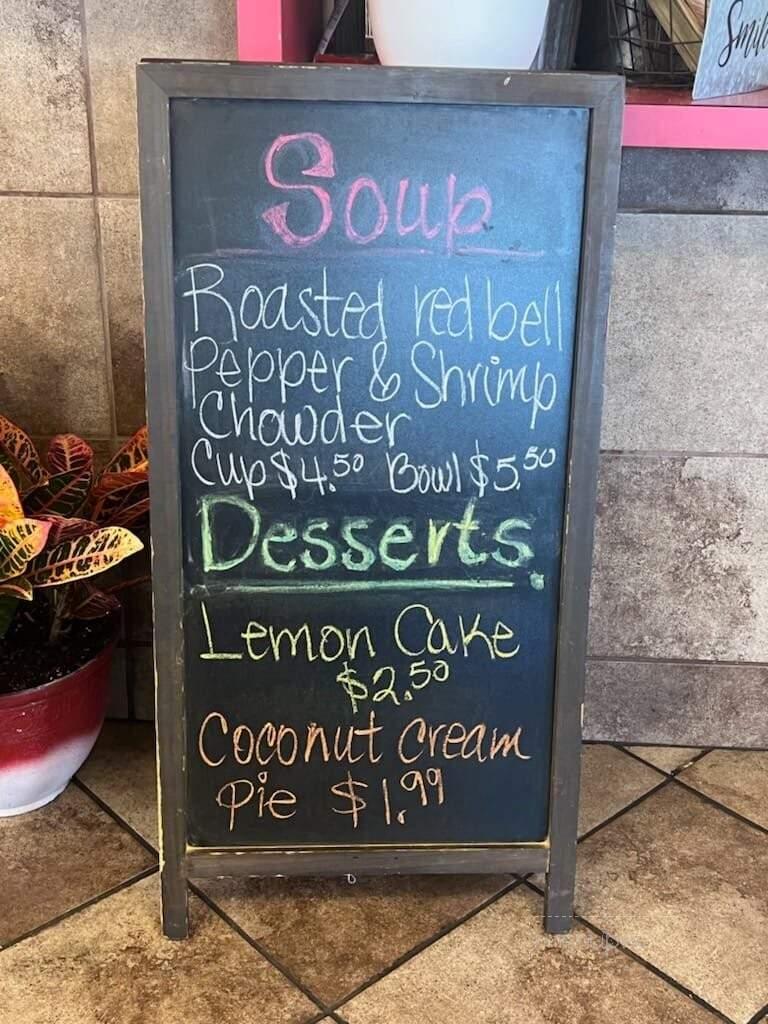 Smile
Soup
Roasted red bell
Pepper & Shrimp
Chowder
Cup $4.50 Bowl $5.50
Desserts
Lemon Cake
$2.50
Coconut Cream
Pie $1.99